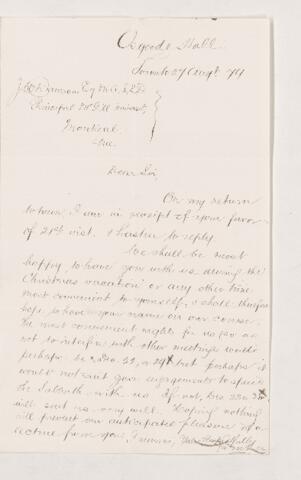 Osgoode Hall
Toronto 27 Augt /79
J W Dawson Esq M.A. LL.D.
Principal McGill University,
Montreal
Que.
Dear Sir,
On my return
to town, I am in receipt of your favor
of 21st inst. & hasten to reply.
We shall be most
happy to have you with us during the
Christmas vacation or any other time
most convenient to yourself, & shall therefore
hope to have your name on our course.
The most convenient nights for us (so as
not to interfere with other meetings) would
perhaps be Dec. 22, or 29 but perhaps it
would not suit your engagements to spend
the Sabbath with us. If not, Dec 23 or 30
will suit us very well. Hoping nothing
will prevent our anticipated pleasure of a
lecture from you, I remain, Yours